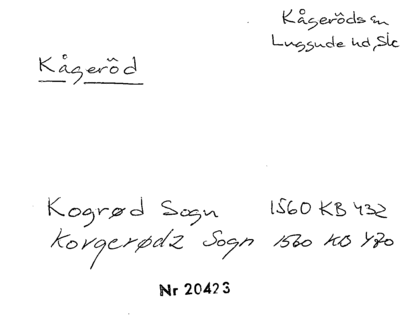 Kågeröds sn
Luggude hd, Slc
Kågeröd
Kogrød Sogn 1560 KB 432
Korgerødz Sogn 1560 KB 470
Nr 20423